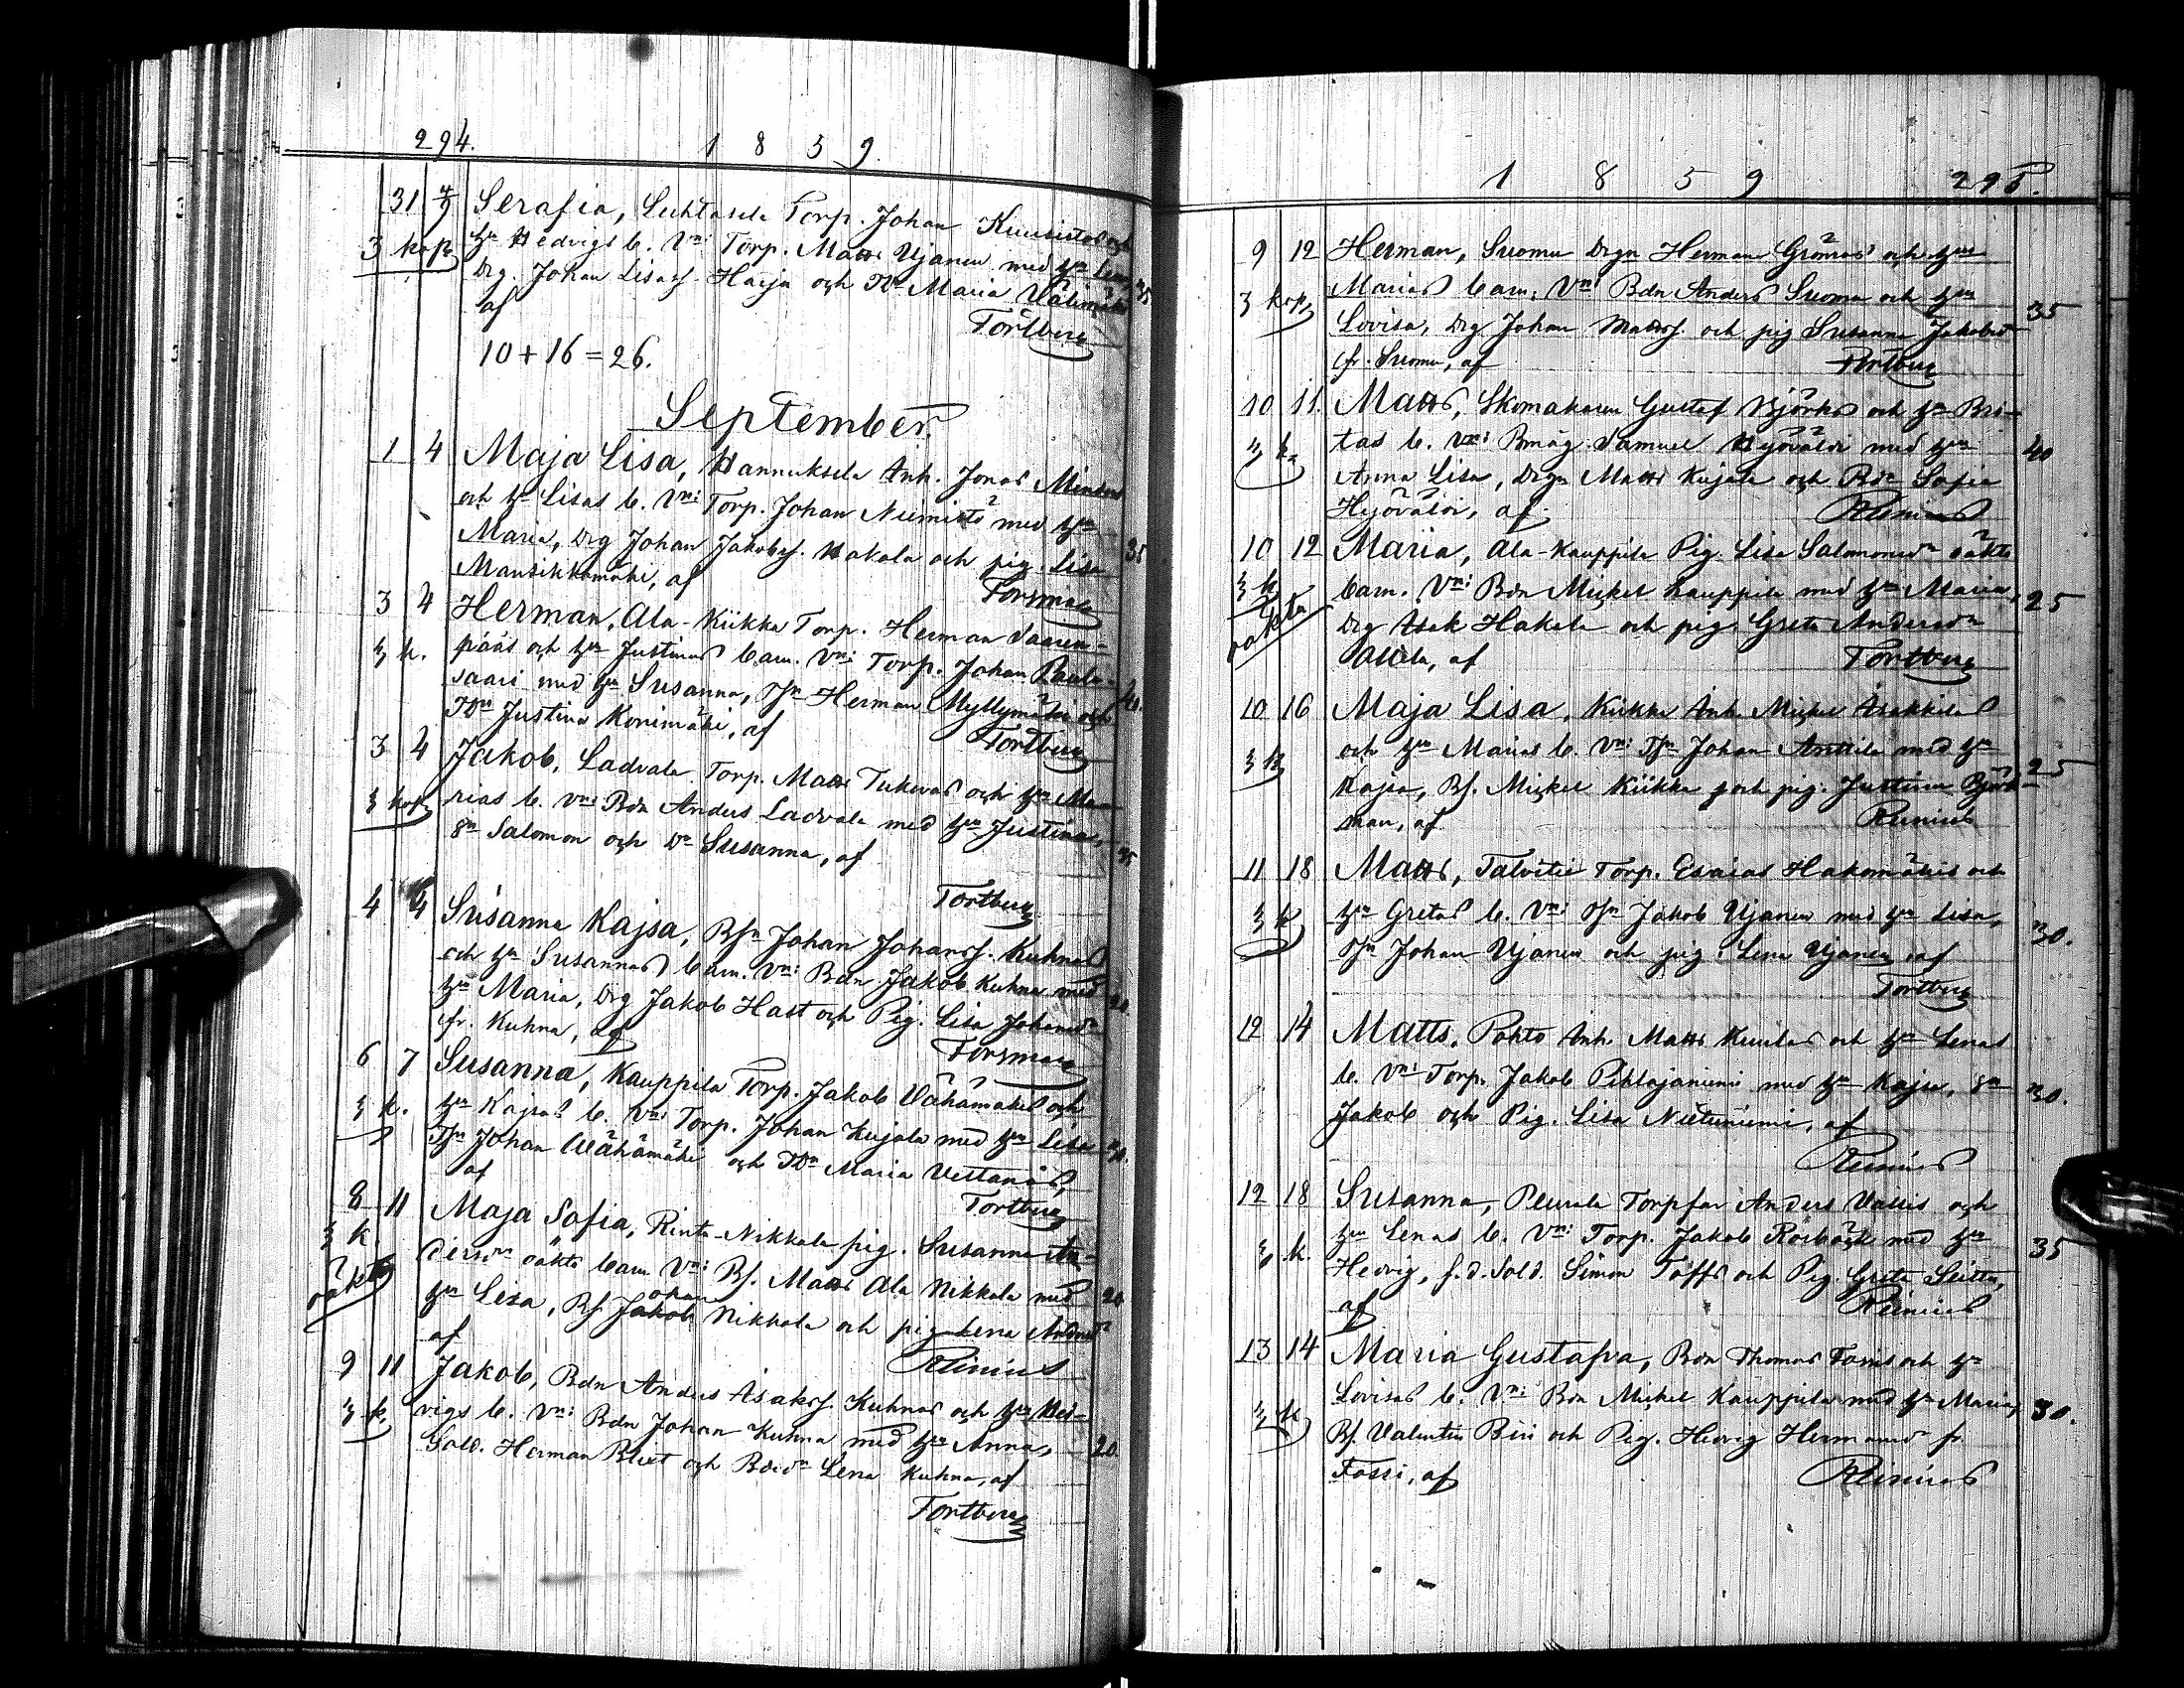 294. 1859.
31 4/9 Serafia, Luhtasela Torp. Johan Kuusistos och
3 kop hu Hedvigs b. Vn: Torp. Matts Ujanen med hu Lena,
Drg. Johan Lisas. Harja och TDr Maria Välimäki 35
af Fortberg
10 + 16 = 26.
September.
1 4 Maja Lisa, Hannuksela Inh. Jonas
och hu Lisas b. Vn: Torp. Johan Niemistö med hu
Maria, Drg Johan Jakobss. Hakala och pig. Lisa 35
Mansikkamäki, af Forsman
3 4 Herman, Ala-Kiikka Torp. Herman Saaren-
3 k. pääs och hu Justinas barn. Vn: Torp. Johan
saari med hu Susanna, TSn Herman Myllymäki och 40.
TDr Justina Konimäki, af Fortberg
3 4 Jakob, Ladvala Torp. Matts Tukevas och hu Ma-
3 kop rias b. Vn: Bdn Anders Ladvala med hu Justina,
Sn Salomon och Dr Susanna, af 35
Fortberg
4 4 Susanna Kajsa, BSn Johan Johanss. Kuhnas
och hu Susannas barn. Vn: Bdn Jakob Kuhna med
hu Maria, Drg Jakob Hast och Pig. Lisa Johansdr 20.
fr. Kuhna, af Forsman
6 7 Susanna, Kauppila Torp. Jakob Vähämäkis och
3 k. hu Kajsas b. Vn: Torp. Johan Kujala med hu Lisa
TSn Johan Vähämäki och TDr Maria
af Fortberg
8 11 Maja Sofia, Rinta-Nikkola pig. Susanna An-
3 k. dersdr oäkta barn Vn: BS. Matts Ala Nikkola med 20
oäkta hu Lisa, BS Jakob ohan Nikkola och pig Lena Andersdr
af Reinius
9 11 Jakob, Bdn Anders Isakss. Kuhnas och hu Hed-
3 k. vigs b. Vn: Bdn Johan Kuhna med hu Anna, 20.
Sold. Herman Blixt och Bdr Lena Kuhna, af
Fortberg
1859 295.
9 12 Herman, Suomu Drgn Herman Grönros och hus
3 kop Marias barn. Vn: Bdn Anders Suomu och hu 35
Lovisa, Drg Johan Mattss. och pig Susanna Jakobsdr
fr. Suomu, af Fortberg
10 11. Matts, Skomakaren Gustaf Björks och hu Bri-
3 k. tas b. Vn: Bmåg Samuel Hyövälti med hu 40
Anna Lisa, Drgn Matts Kujala och Bdr Sofia
Hyövälti, af Reinius
10 12 Maria, Ala-Kauppila Pig. Lisa Salomonsdr oäkta
3 k barn. Vn: Bdn Mickel Kauppila med hu Maria, 25
oäkta Drg Isak Hakala och pig. Greta Andersdr
Alala, af Fortberg
10 16 Maja Lisa, Kiikka Inh. Mickel Isakkilas
3 k och hu Marias b. Vn: TSn Johan Anttila med hu 25
Kajsa, BS. Mickel Kiikka och pig. Justina Björk-
man, af Reinius
11 18 Matts, Talvitie Torp. Esaias Hakomäkis och
3 k hu Gretas b. Vn: TSn Jakob Ujanen med hu Lisa, 30.
TSn Johan Ujanen och pig. Lena Ujanen af
Fortberg
12 14 Matts, Pohto Inh. Matts Kuulas och hu Lenas
b. Vn: Torp. Jakob Pihlajaniemi med hu Kajsa, Sn 30.
Jakob och Pig. Lisa Nietuniemi, af
Reinius
12 18 Susanna, Peurala Torpfar Anders Vallis och
3 k. hu Lenas b. Vn: Torp. Jakob Rosbäck med hu 35
Hedvig, f.d. Sold. Simon Töffs och Pig. Greta
af Reinius
13 14 Maria Gustafva, Bdn Thomas Fossis och hu
3 k Lovisas b. Vn: Bdn Mickel Kauppila med hu Maria, 30.
BS. Valentin Biri och Pig. Hedvig Hermansdr fr.
Fossi, af Reinius